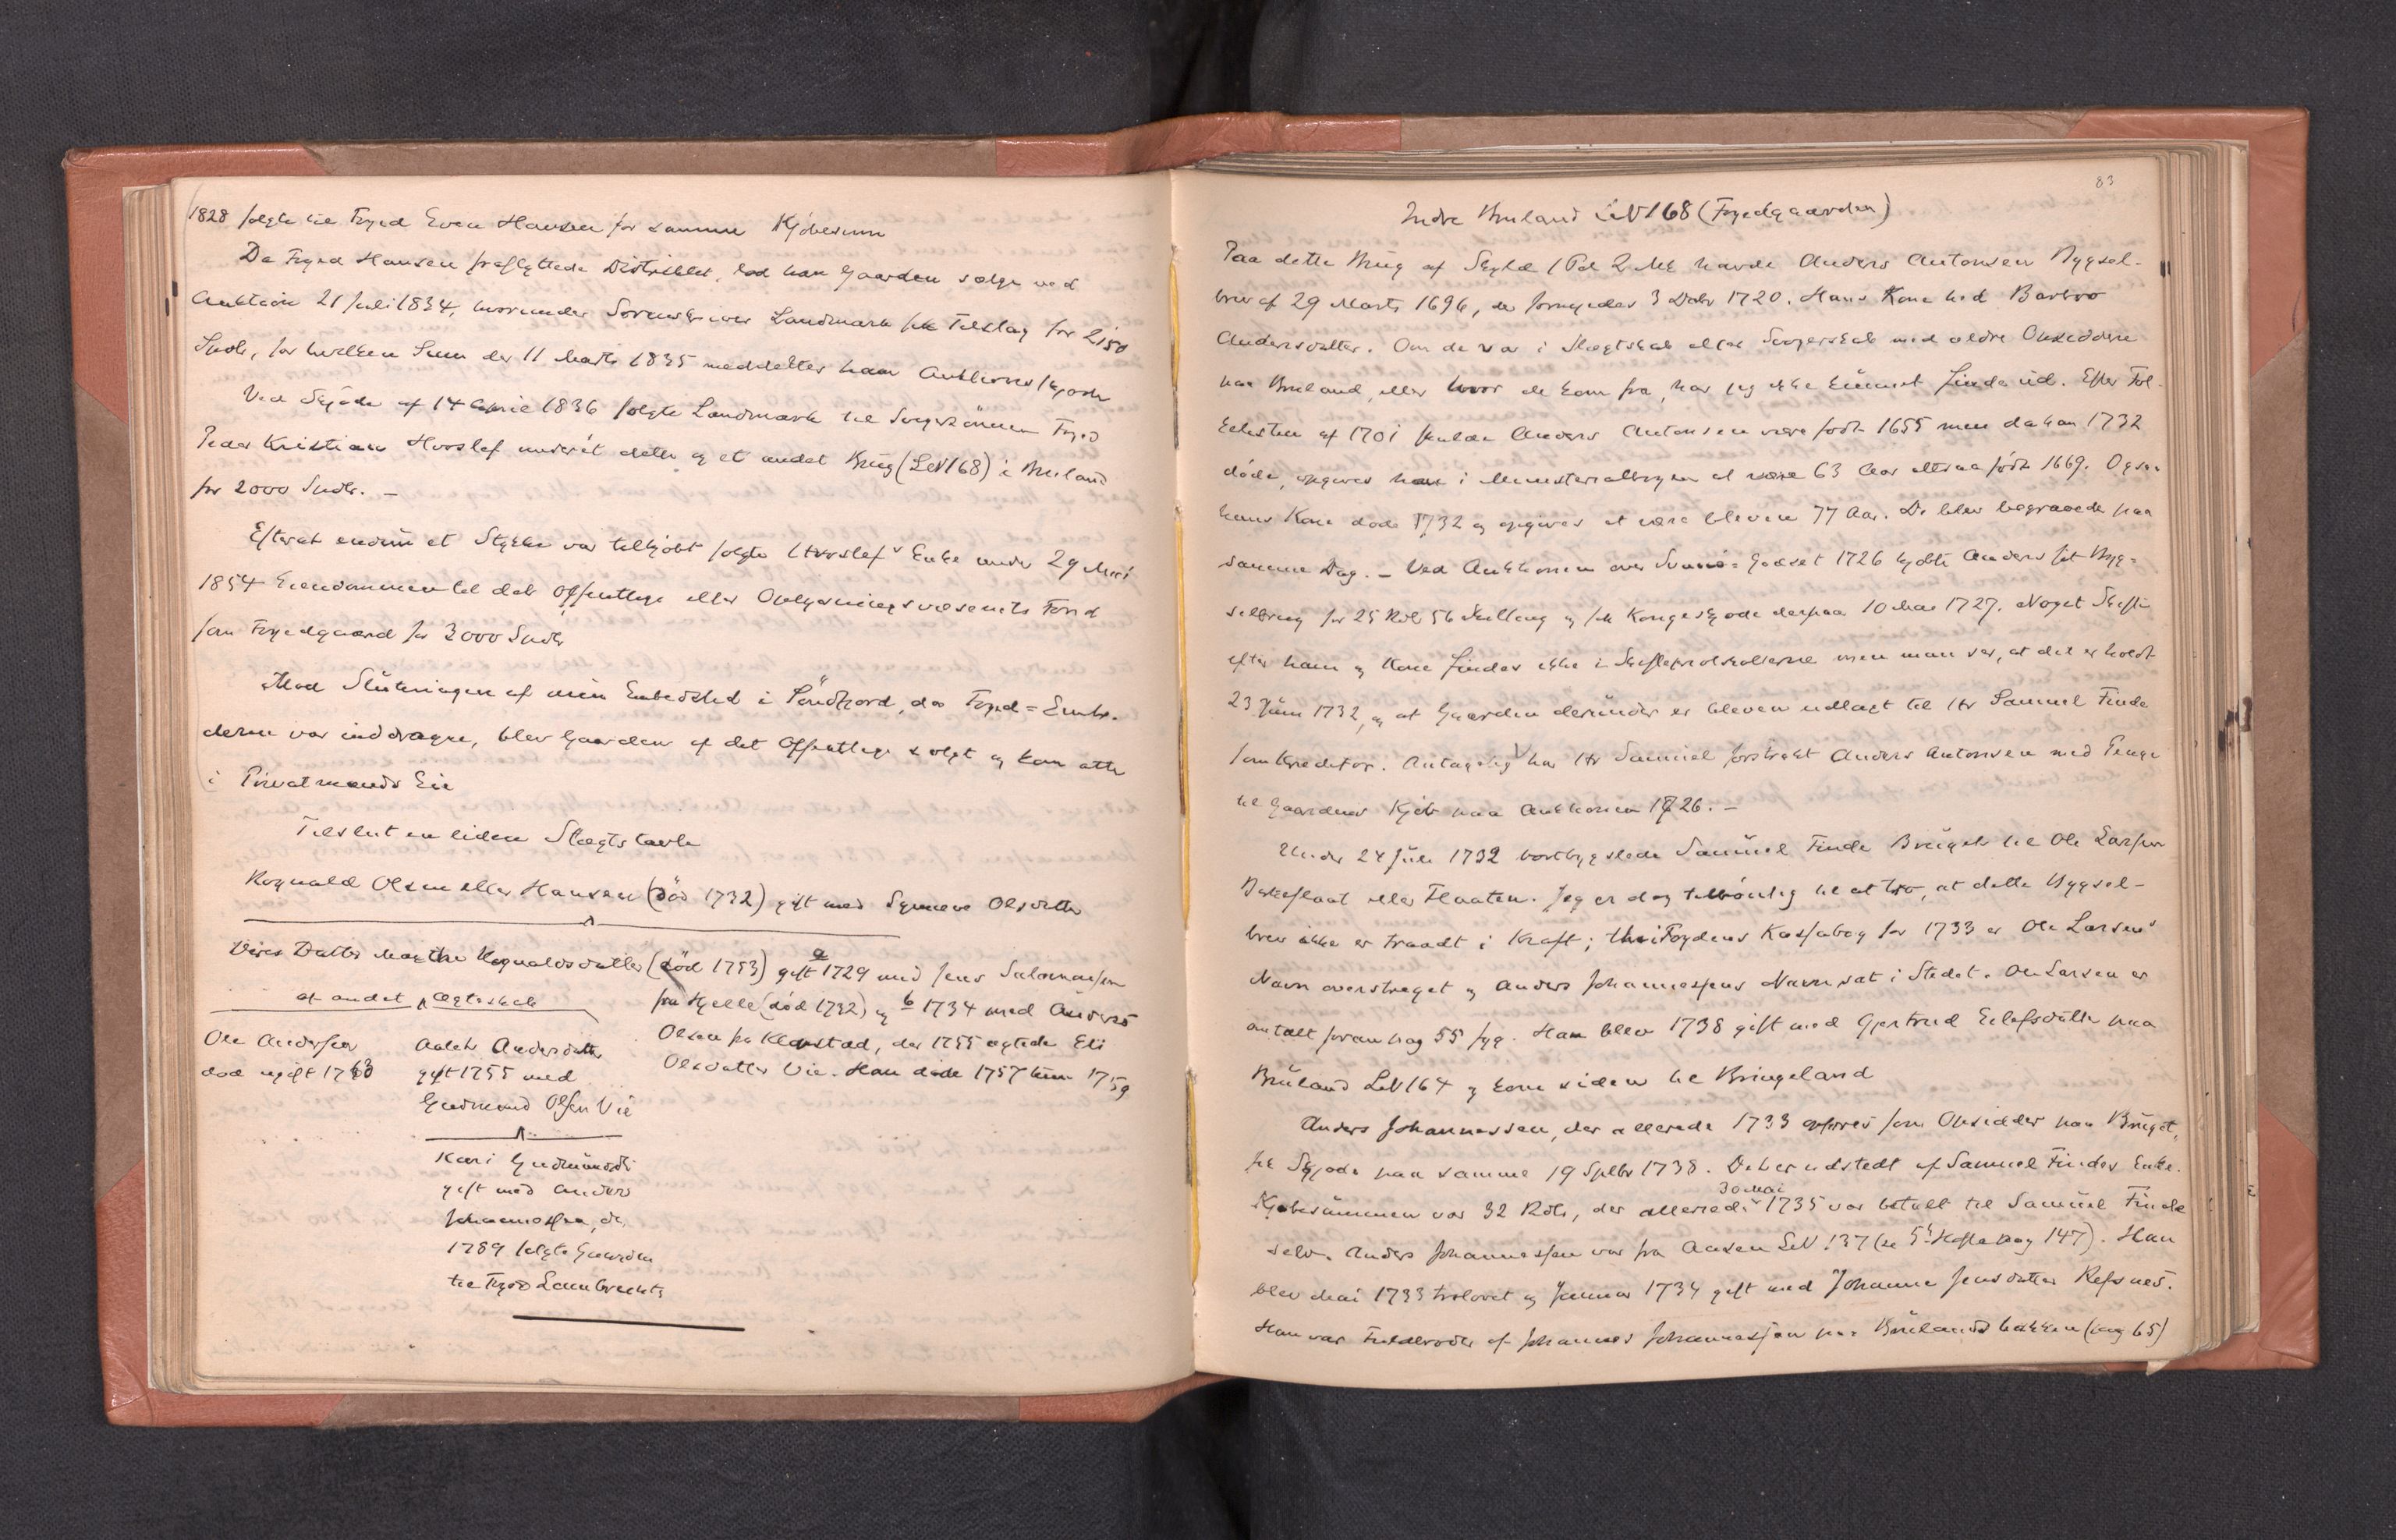 1828 solgte til Foged Even Hansen for samme Kjøbesum
Da Foged Hansen fraflyttede Distriktet, lod han Gaarden sælge ved
Auktion 21 Juli 1834, hvorunder Sorenskriver Landmark fik Tilslag for 2150
Spdlr, for hvilken Sum der 11 Marts 1835 meddeltes ham Auktionsskjøde
Ved Skjøde af 14 April 1836 solgte Landmark til Svigersønnen Foged
Peder Kristian Hvoslef underét dette og et andet Brug (LN 168) i Bruland
for 2000 Spdlr. —
Efterat endnu et Stykke var tilkjøbt solgte Hvoslefs Enke under 29 Mai
1854 Eiendommen til det Offentlige eller Oplysningsvæsenets Fond
som Fogedgaard for 3000 Spdlr
Mod Slutningen af min Embedstid i Søndfjord, da Foged=Embe-
derne var inddragne, blev Gaarden af det Offentlige solgt og kom atter
i Privatmands Eie
Tilslut en liden Slægtstavle
Rognald Olsen eller Hansen (død 1732) gift med Synneve Olsdatter
Deres Datter Marthe Rognaldsdatter (død 1753) gift a 1729 med Jens Salomonsen
af andet Ægteskab
fra Hjelle (død 1732) og b 1734 med Anders
Ole Andersen
Anders datter
Olsen fra Klopstad, der 1755 ægtede Eli
død ugift 1763
gift 1755 med
Olsdatter Vie. Han døde 1757 hun 1759
Gudmund Olsen Vie
Kari Gudmundsdtr
gift med Anders
Johannessen, der
1789 solgte Gaarden
til Foged Lambrechts
83
Indre Bruland LN 168 (Fogedgaarden)
Paa dette Brug af Skyld 1 Pd 2 Mk havde Anders Antonsen Bygsel-
brev af 29 Marts 1696, der fornyedes 3 Debr 1720. Hans Kone hed Barbro
Andersdatter. Om de var i Slægtskab eller Svogerskab med ældre Opsiddere
paa Bruland, eller hvor de kom fra, har jeg ikke kunnet finde ud. Efter Fol-
ketællingen af 1701 skulde Anders Antonsen være født 1655 men da han 1732
døde, opgives han i Ministerialbogen at være 63 Aar altsaa født 1669. Ogsaa
hans Kone døde 1732 og opgives at være bleven 77 Aar. De blev begravede paa
samme Dag. — Ved Auktionen over Svanø=Godset 1726 kjøbte Anders sit Byg=
selbrug for 25 Rdl 56 Skilling og fik Kongeskjøde derpaa 10 Mai 1727. Noget Skifte
efter ham og Kone findes ikke i Skifteprotokollerne men man ser, at det er holdt
23 Juni 1732, og at Gaarden derunder er bleven udlagt til Hr Samuel Finde
som Kreditor. Antagelig har Hr Samuel forstrakt Anders Antonsen med Penge
til Gaardens Kjøb paa Auktionen 1726. —
Under 24 Juli 1732 bortbygslede Samuel Finde Bruget til Ole Larsen
eller Flaaten. Jeg er dog tilbøielig til at tro, at dette Bygsel-
brev ikke er traadt i Kraft; thi i Fogdens Kassabog for 1733 er Ole Larsens
Navn overstreget og Anders Johannessens Navn sat i Stedet. Ole Larsen er
omtalt foran pag 55 fyg. Han blev 1738 gift med Gjertrud Eilefsdatter paa
Bruland LN 164 og kom siden til Bringeland
Anders Johannessen, der allerede 1733 opføres som Opsidder paa Bruget,
fik Skjøde paa samme 19 Septbr 1738. Det er udstedt af Samuel Findes Enke.
Kjøbesummen var 32 Rdlr, der allerede 30 Mai 1735 var betalt til Samuel Finde
selv. Anders Johannessen var fra Aasen LN 137 (se 5t Hefte pag 147). Han
blev Mai 1733 trolovet og Januar 1734 gift med Johanne Jensdatter Refsnes.
Han var Fuldbroder af Johannes Johannessen paa Brulandsbakken (pag 65)